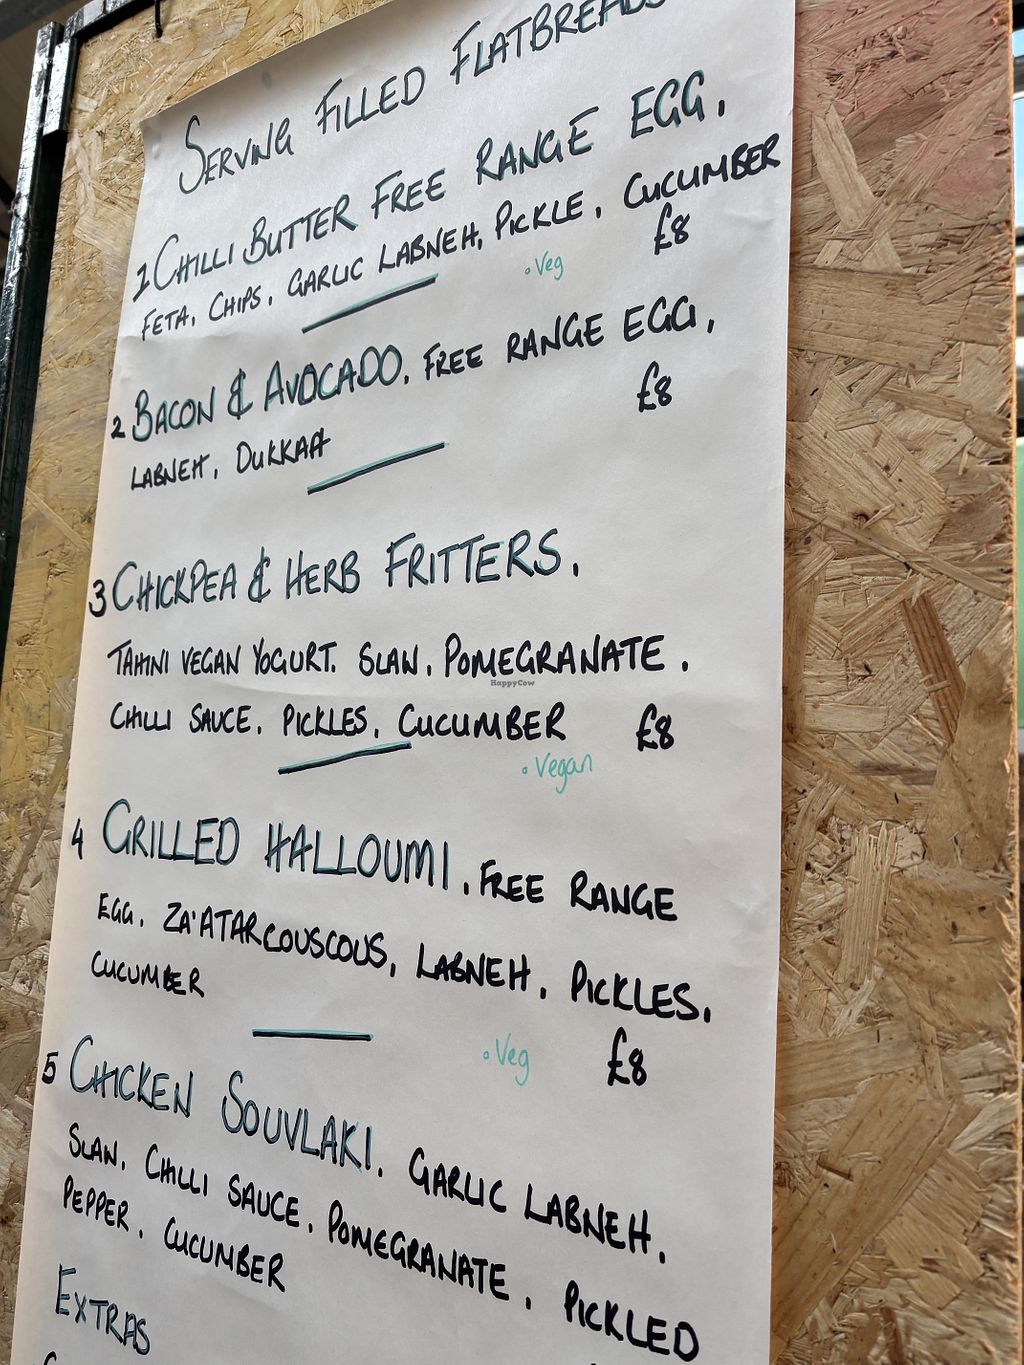 SERVING FILLED FLATBREADS
1 CHILLI BUTTER FREE RANGE EGG,
FETA, CHIPS, GARLIC LABNEH, PICKLE, CUCUMBER
• Veg £8
2 BACON & AVOCADO, FREE RANGE EGG,
LABNEH, DUKKAH £8
3 CHICKPEA & HERB FRITTERS,
TAHINI VEGAN YOGURT. SLAW, POMEGRANATE,
CHILLI SAUCE, PICKLES, CUCUMBER £8
• Vegan
4 GRILLED HALLOUMI, FREE RANGE
EGG, ZA'ATAR COUSCOUS, LABNEH, PICKLES,
CUCUMBER
• Veg £8
5 CHICKEN SOUVLAKI, GARLIC LABNEH,
SLAW, CHILLI SAUCE, POMEGRANATE, PICKLED
PEPPER, CUCUMBER
EXTRAS
HappyCow